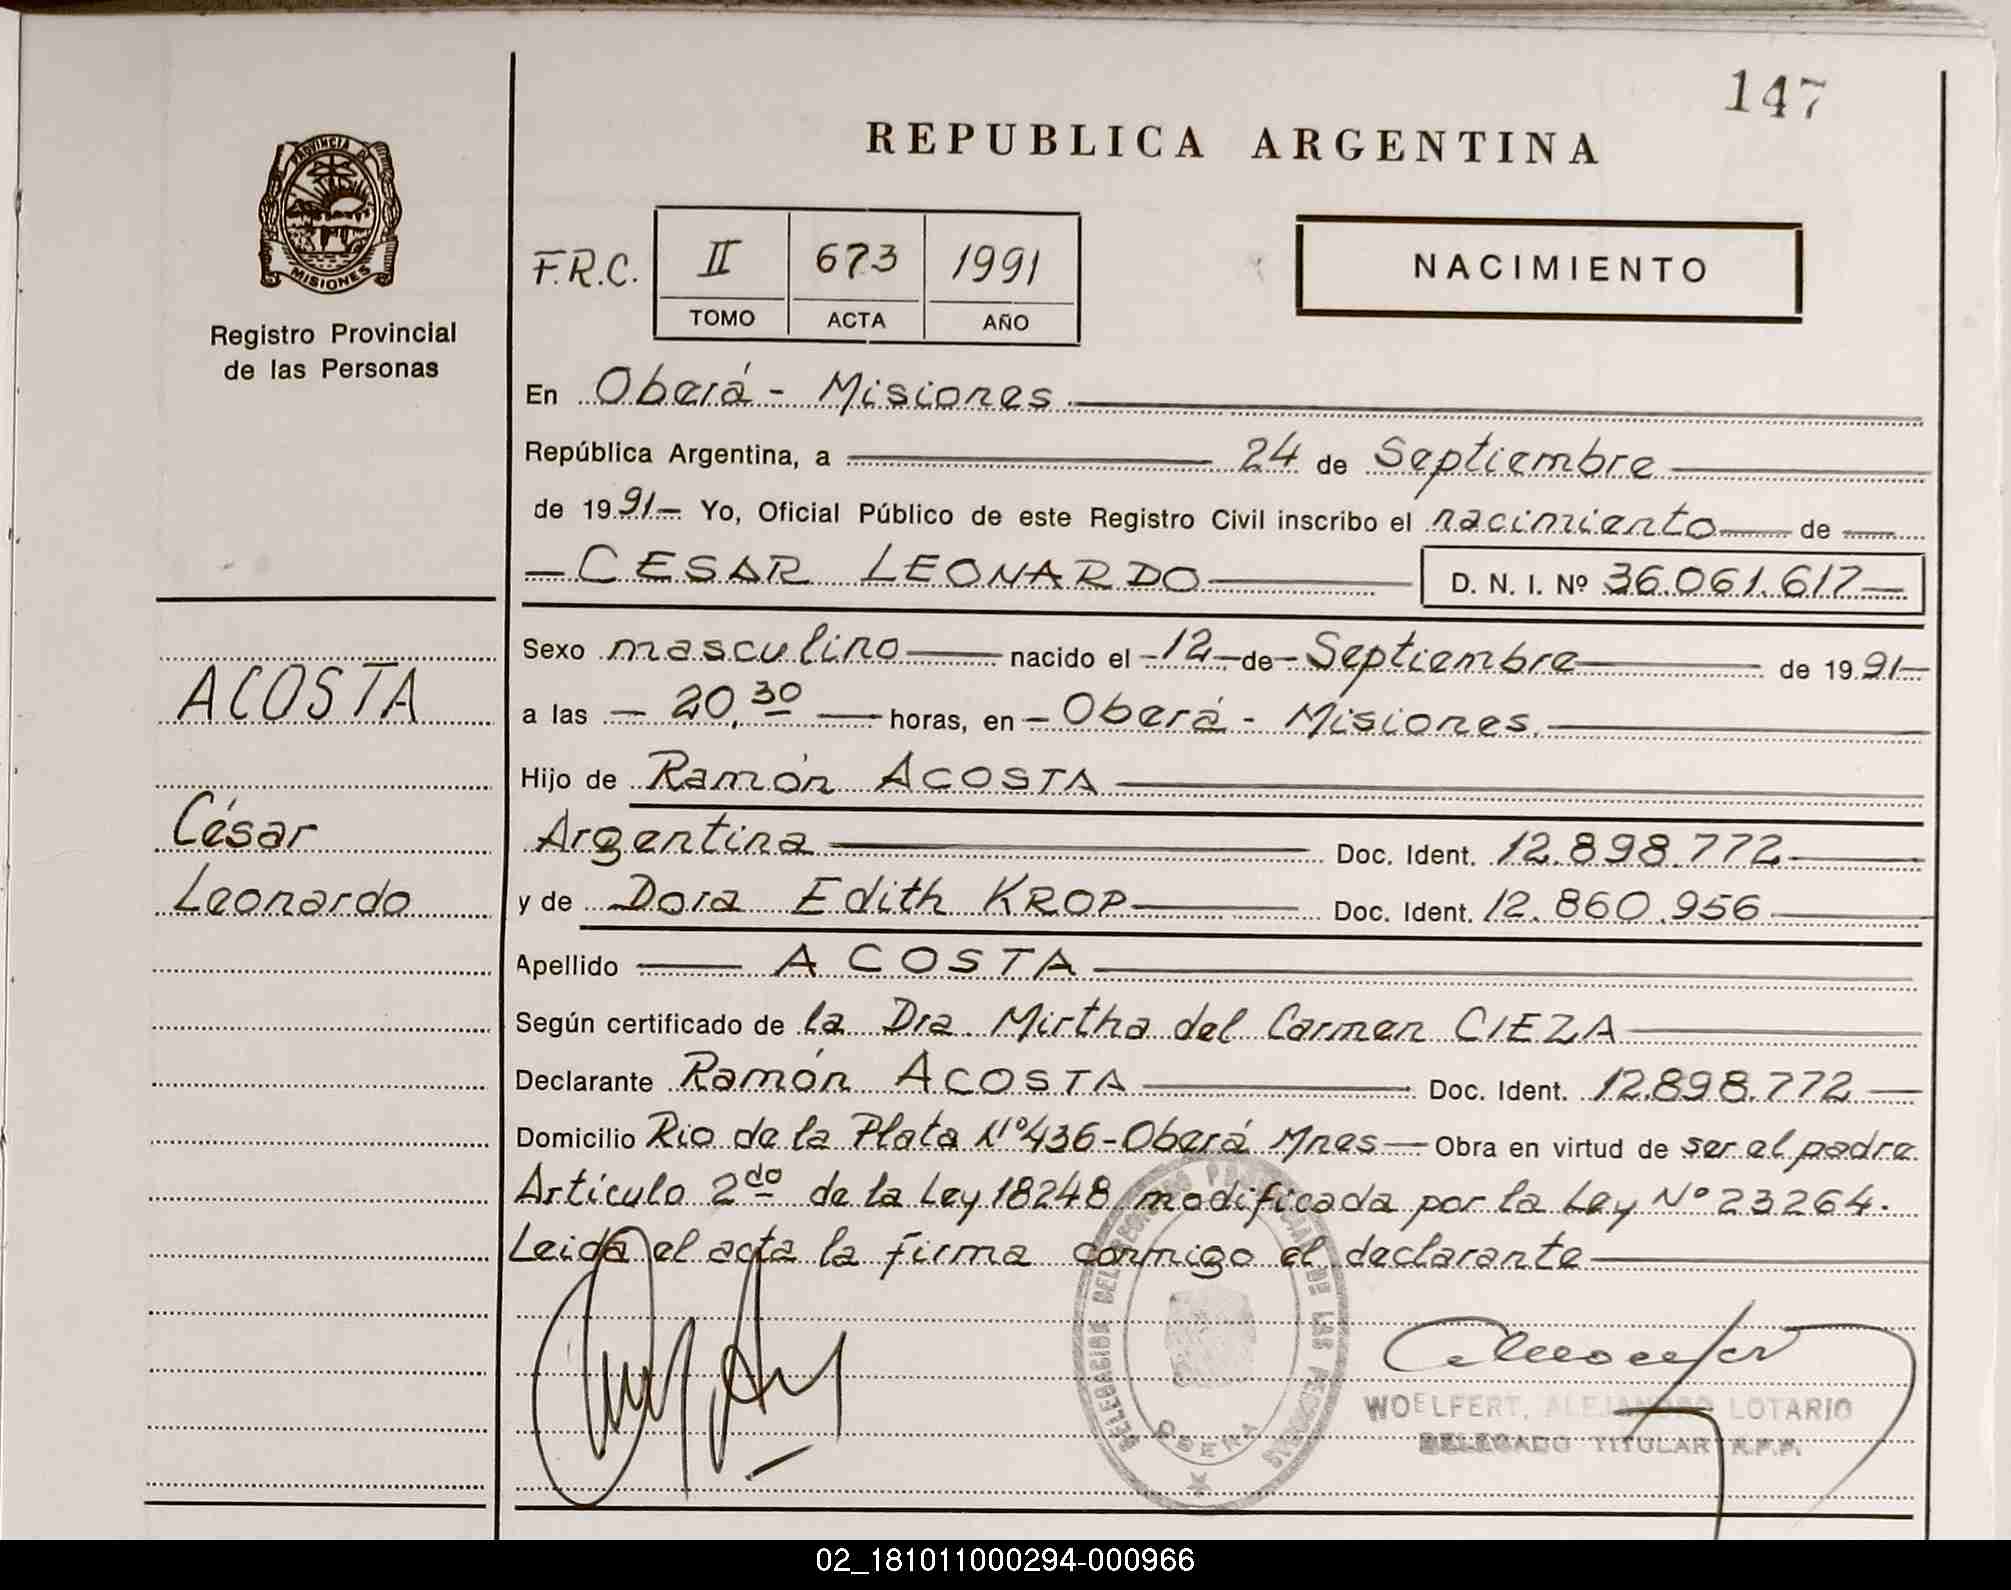 147
REPUBLICA ARGENTINA
PROVINCIA DE
MISIONES
Registro Provincial
de las Personas
F.R.C. II 673 1991
TOMO ACTA AÑO
NACIMIENTO
En Oberá - Misiones
República Argentina, a 24 de Septiembre
de 1991 Yo, Oficial Público de este Registro Civil inscribo el nacimiento de
CESAR LEONARDO D. N. I. Nº 36.061.617
ACOSTA
César
Leonardo
Sexo masculino nacido el 12 de Septiembre de 1991
a las 20,30 horas, en Oberá - Misiones.
Hijo de Ramón ACOSTA
Argentina Doc. Ident. 12.898.772
y de Dora Edith KROP Doc. Ident. 12.860.956
Apellido ACOSTA
Según certificado de la Dra. Mirtha del Carmen CIEZA
Declarante Ramón ACOSTA Doc. Ident. 12.898.772
Domicilio Rio de la Plata Nº 436 - Oberá Mnes Obra en virtud de ser el padre
Artículo 2do de la Ley 18248 modificada por la Ley Nº 23264.
Leida el acta la firma conmigo el declarante
DELEGACION DEL REGISTRO PROVINCIAL DE LAS PERSONAS
OBERA
WOELFERT, ALEJANDRO LOTARIO
DELEGADO TITULAR R.P.P.
02_181011000294-000966